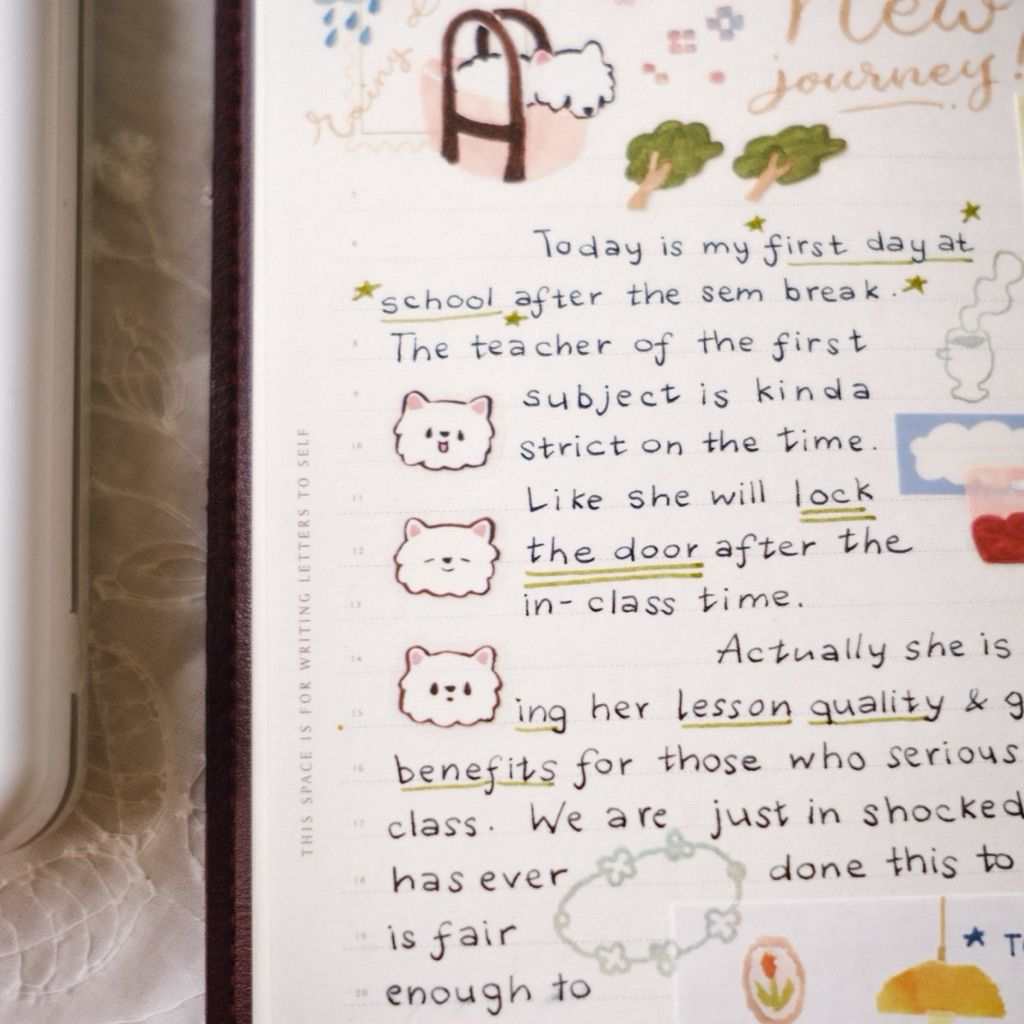 New
journey!
rainy
Today is my first day at
school after the sem break.
The teacher of the first
subject is kinda
strict on the time.
Like she will lock
the door after the
in-class time.
Actually she is
ing her lesson quality &
benefits for those who serious
class. We are just in shocked
has ever done this to
is fair
enough to
THIS SPACE IS FOR WRITING LETTERS TO SELF
5
6
8
9
10
11
12
13
14
15
16
17
18
19
20